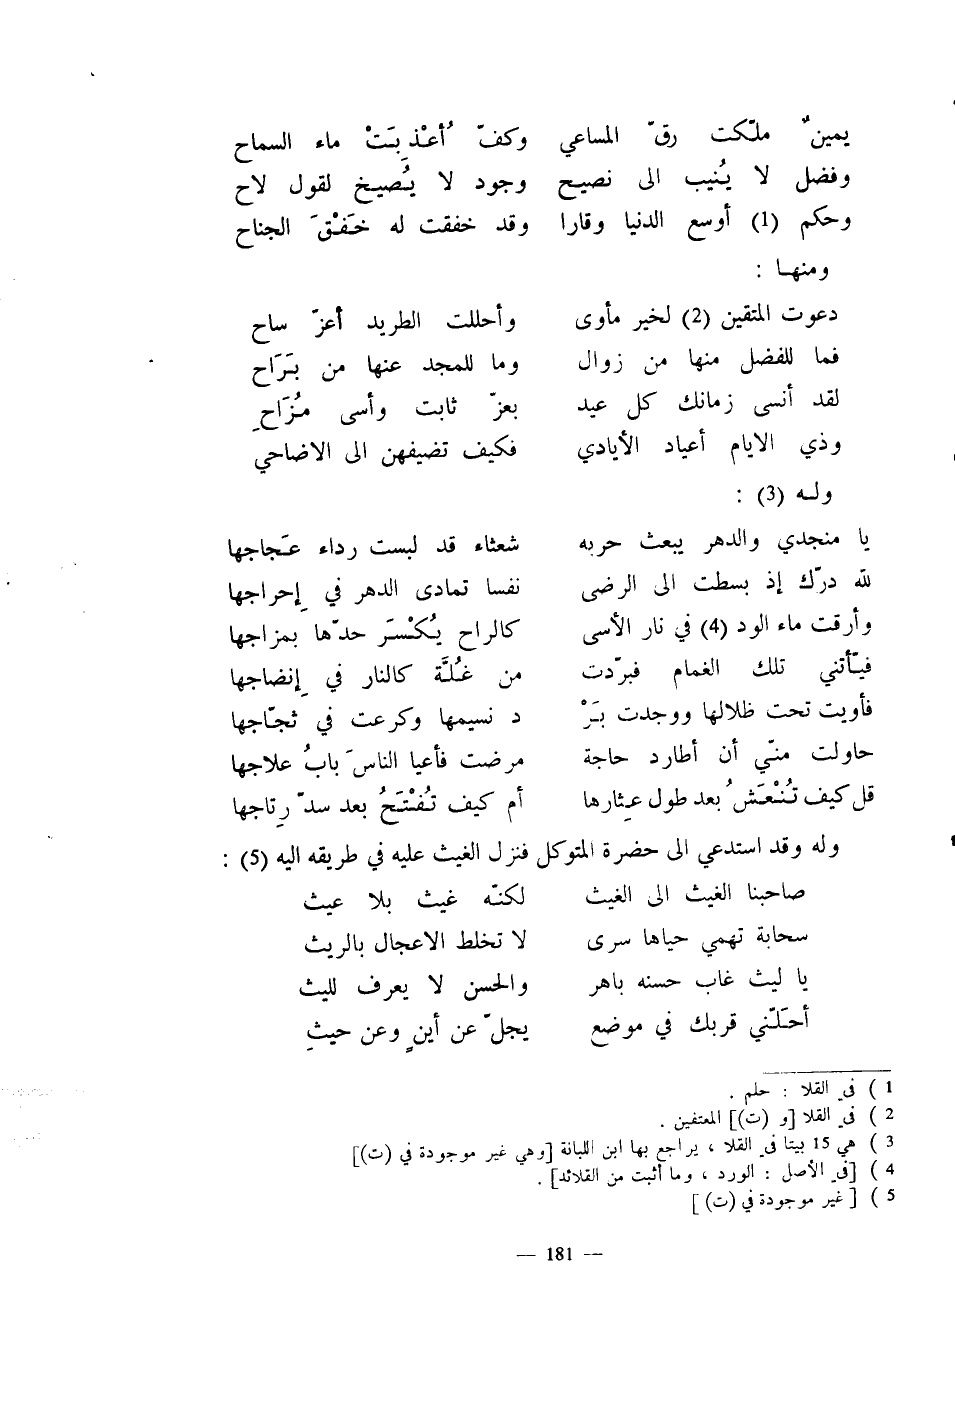 يمينٌ ملّكت رقّ المساعي وكفّ أُعْذِبَتْ ماء السماح
وفضل لا يُنيب الى نصيح وجود لا يُصِيخ لقول لاح
وحكم (1) أوسع الدنيا وقارا وقد خفقت له خَفْقَ الجناح
ومنها :
دعوت المتقين (2) لخير مأوى وأحللت الطريد أعزّ ساح
فما للفضل منها من زوال وما للمجد عنها من بَرَاح
لقد أنسى زمانك كل عيد بعزّ ثابت وأسى مُزَاحِ
وذي الايام أعياد الأيادي فكيف تضيفهن الى الاضاحي
وله (3) :
يا منجدي والدهر يبعث حربه شعثاء قد لبست رداء عَجاجها
لله درّك إذ بسطت الى الرضى نفسا تمادى الدهر في إِحراجها
وأرقت ماء الود (4) في نار الأسى كالراح يُكْسَر حدّها بمزاجها
فيّأتني تلك الغمام فبرّدت من غُلَّة كالنار في إِنضاجها
فأويت تحت ظلالها ووجدت بَرْ د نسيمها وكرعت في ثجّاجها
حاولت منّي أن أطارد حاجة مرضت فأعيا الناسَ بابُ علاجها
قل كيف تُنْعَشُ بعد طول عِثارها أم كيف تُفْتَحُ بعد سدّ رِتاجها
وله وقد استدعي الى حضرة المتوكل فنزل الغيث عليه في طريقه اليه (5) :
صاحبنا الغيث الى الغيث لكنّه غيث بلا عيث
سحابة تهمي حياها سرى لا تخلط الاعجال بالريث
يا ليث غاب حسنه باهر والحسن لا يعرف لليث
أحَلّني قربك في موضع يجلّ عن أينٍ وعن حيثِ
1 ) في القلا : حلم .
2 ) في القلا [و (ت)] المعتفين .
3 ) هي 15 بيتا في القلا ، يراجع بها ابن اللبانة [وهي غير موجودة في (ت)]
4 ) [في الأصل : الورد ، وما أثبت من القلائد] .
5 ) [ غير موجودة في (ت) ]
— 181 —